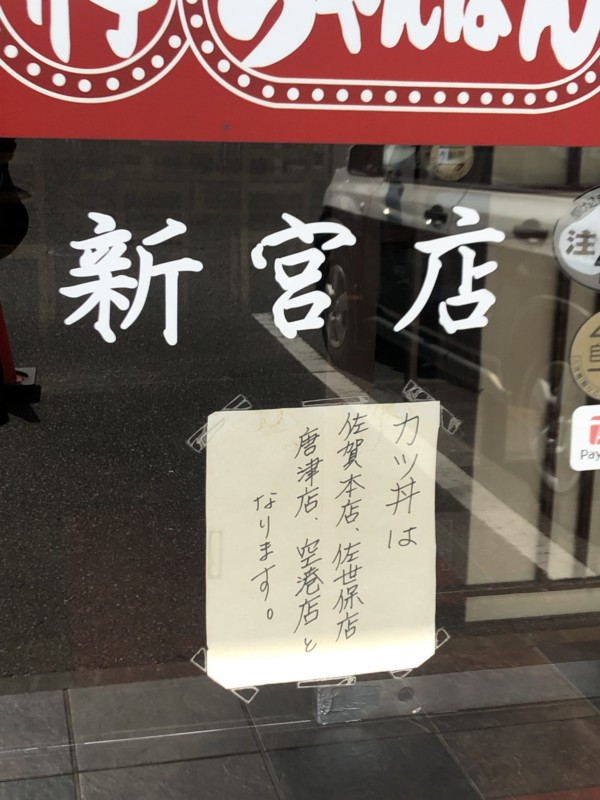 ちゃんぽん
新宮店
注
Pay
カツ丼は
佐賀本店、佐世保店
唐津店、空港店と
なります。